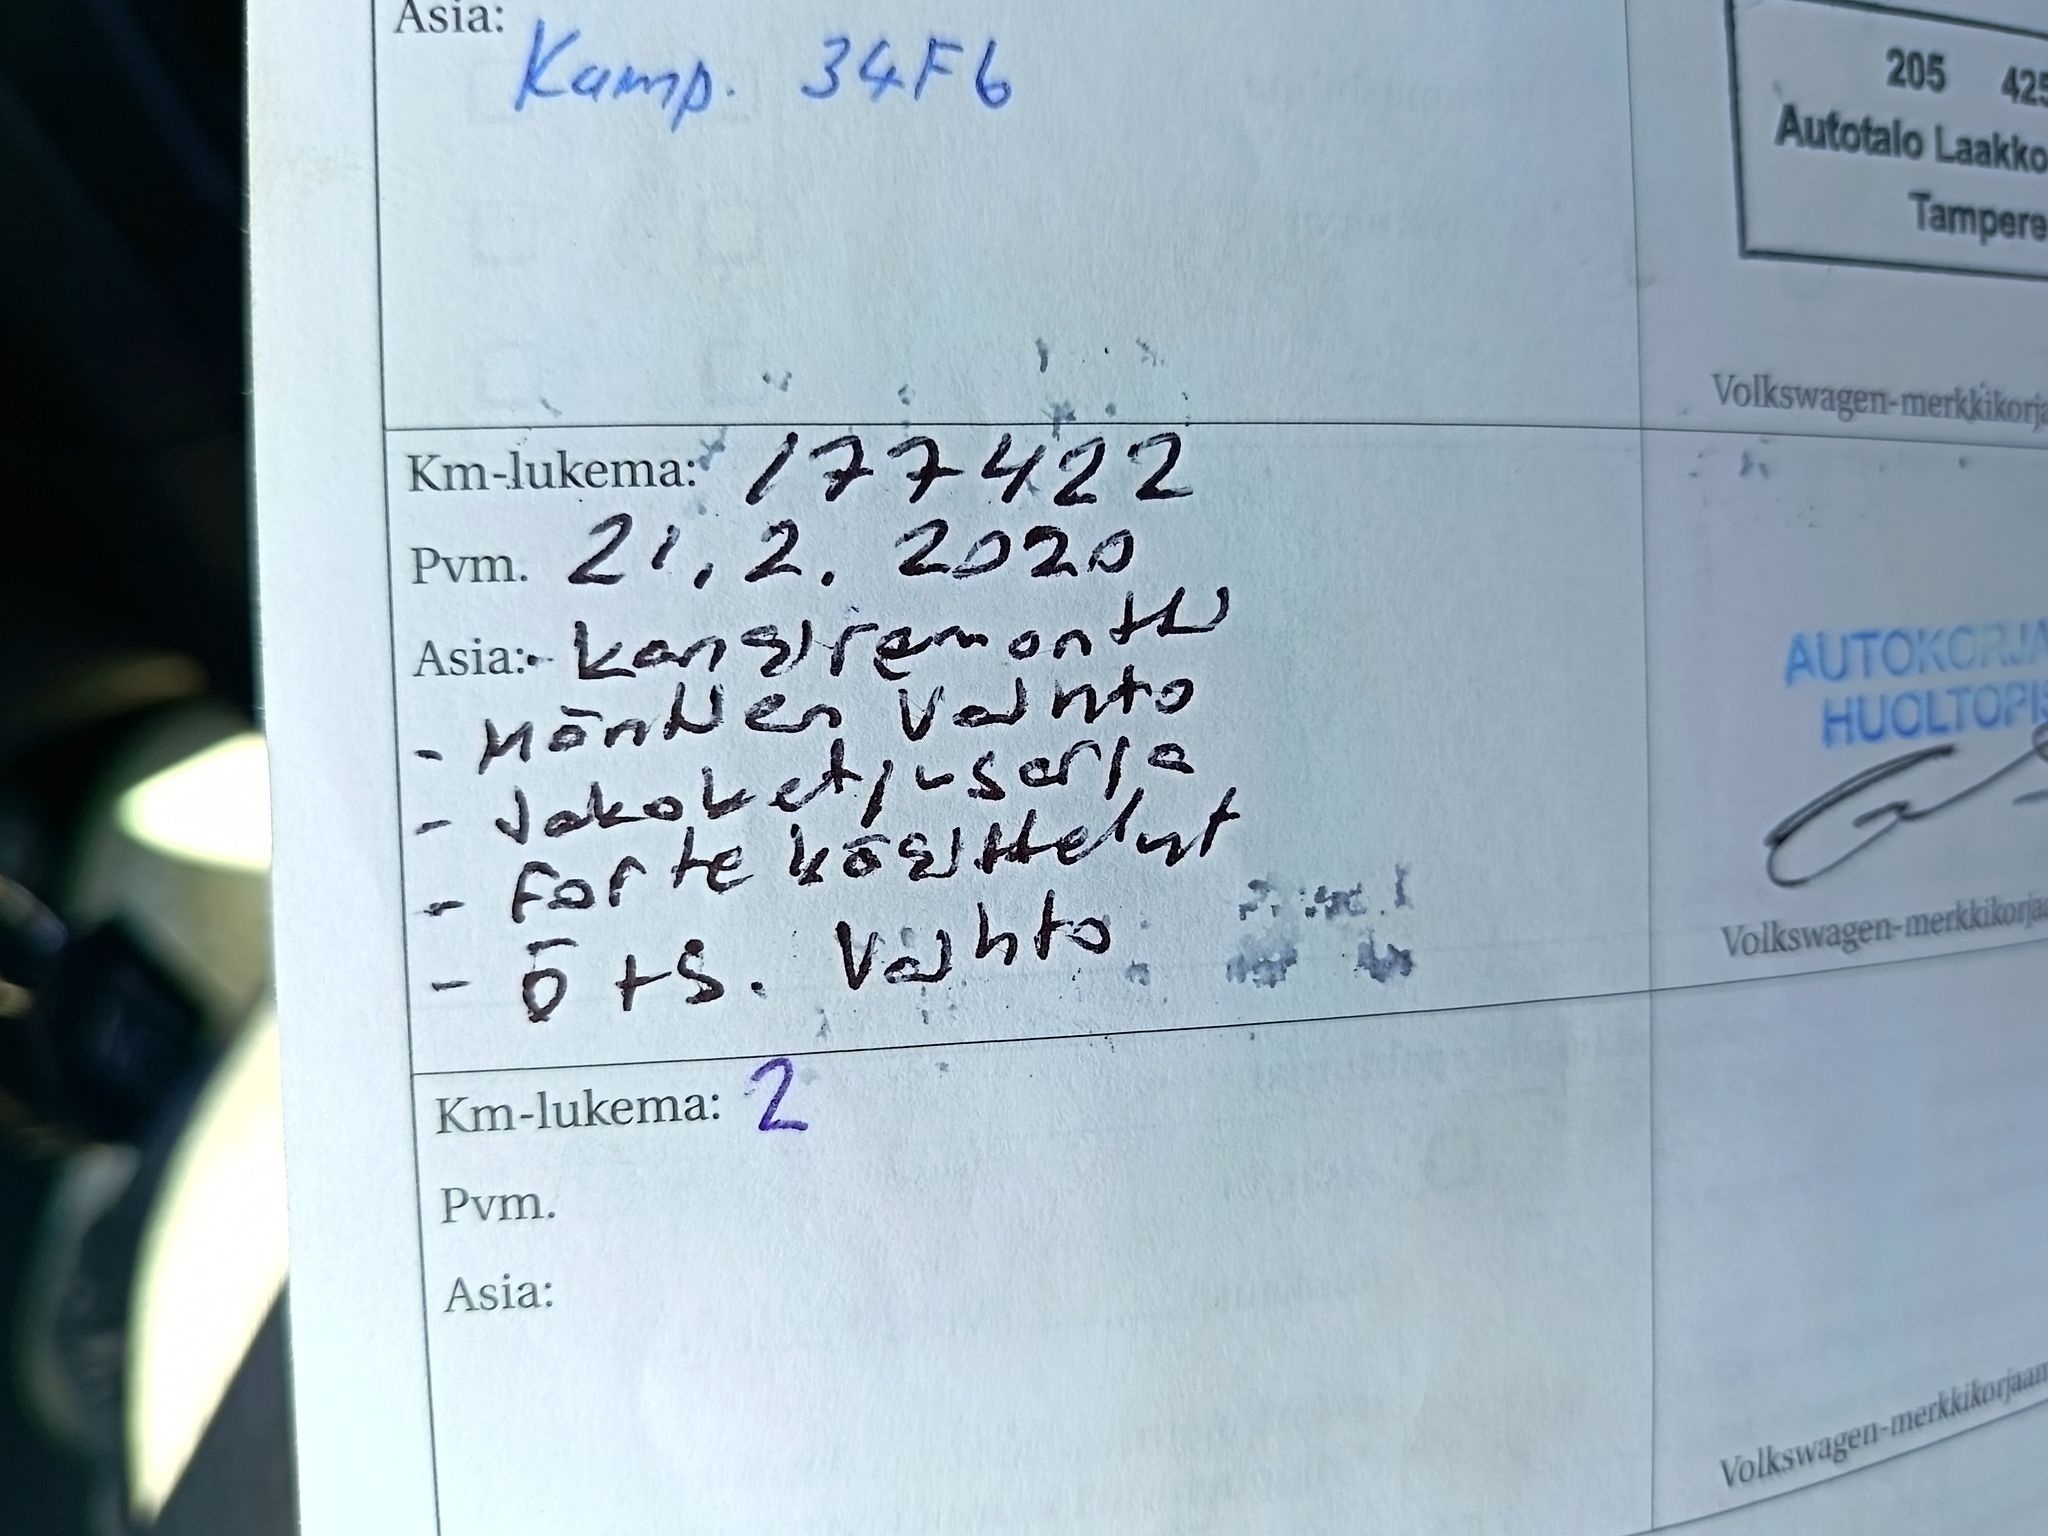 Asia:
Kamp. 34F6
205 425
Autotalo Laakko
Tampere
Volkswagen-merkkikorja
Km-lukema: 177422
Pvm. 21.2.2020
Asia: - Kansiremontti
- Mäntien vaihto
- Jakoketjusarja
- Forte käsittelyt
- Ö+S. Vaihto
AUTOKORJA
HUOLTOPIS
Volkswagen-merkkikorjaa
Km-lukema: 2
Pvm.
Asia:
Volkswagen-merkkikorjaam